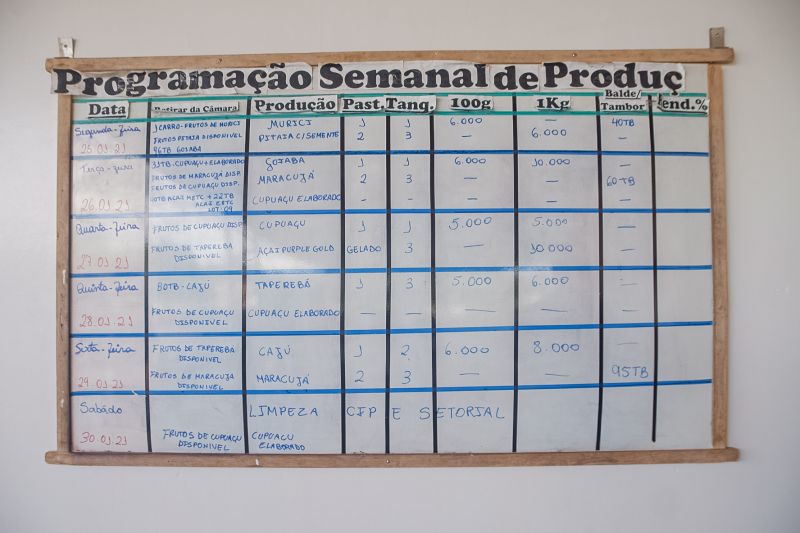 Programação Semanal de Produç
Data Retirar da Câmara Produção Past. Tanq. 100g 1Kg Balde/ Tambor end.%
Segunda-feira 1 CARRO-FRUTOS DE MURICI MURICI 1 1 6.000 — 40TB
FRUTOS PITAIA DISPONIVEL PITAIA C/SEMENTE 2 3 — 6.000 —
25.01.21 96TB GOIABA
Terça-feira CUPUAÇU ELABORADO GOIABA 1 1 6.000 10.000 —
FRUTOS DE MARACUJÁ DISP. MARACUJÁ 2 3 — — 60TB
FRUTOS DE CUPUAÇU DISP.
26.01.21 AÇAI METC + 22TB CUPUAÇU ELABORADO - - - - -
AÇAI ZETC
LOT:09
Quarta-feira FRUTOS DE CUPUAÇU DISP CUPUAÇU 1 1 5.000 5.000 —
FRUTOS DE TAPEREBÁ AÇAI PURPLE GOLD GELADO 3 — 10.000 —
27.01.21 DISPONIVEL
Quinta-feira 80TB-CAJÚ TAPEREBÁ 1 3 5.000 6.000 —
28.01.21 FRUTOS DE CUPUAÇU CUPUAÇU ELABORADO — — — — —
DISPONIVEL
Sexta-feira FRUTOS DE TAPEREBÁ CAJÚ 1 2 6.000 8.000 —
DISPONIVEL
29.01.21 FRUTOS DE MARACUJA MARACUJÁ 2 3 — — 95TB
DISPONIVEL
Sabádo LIMPEZA CIP E SETORIAL
30.01.21 FRUTOS DE CUPUAÇU CUPUAÇU
DISPONIVEL ELABORADO